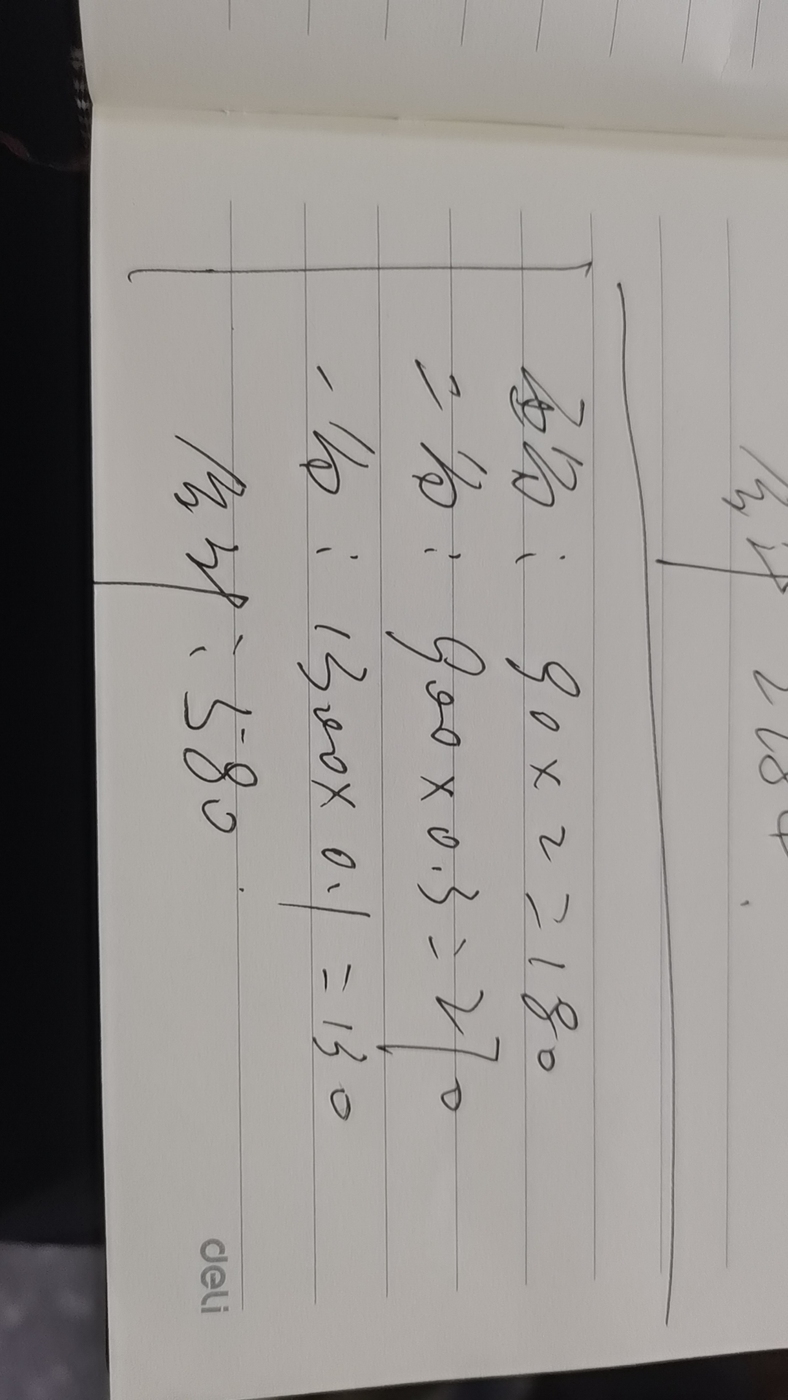 总计 284
: 90×2=180
二 : 900×0.3=270
一 : 1300×0.1=130
总计: 580
deli